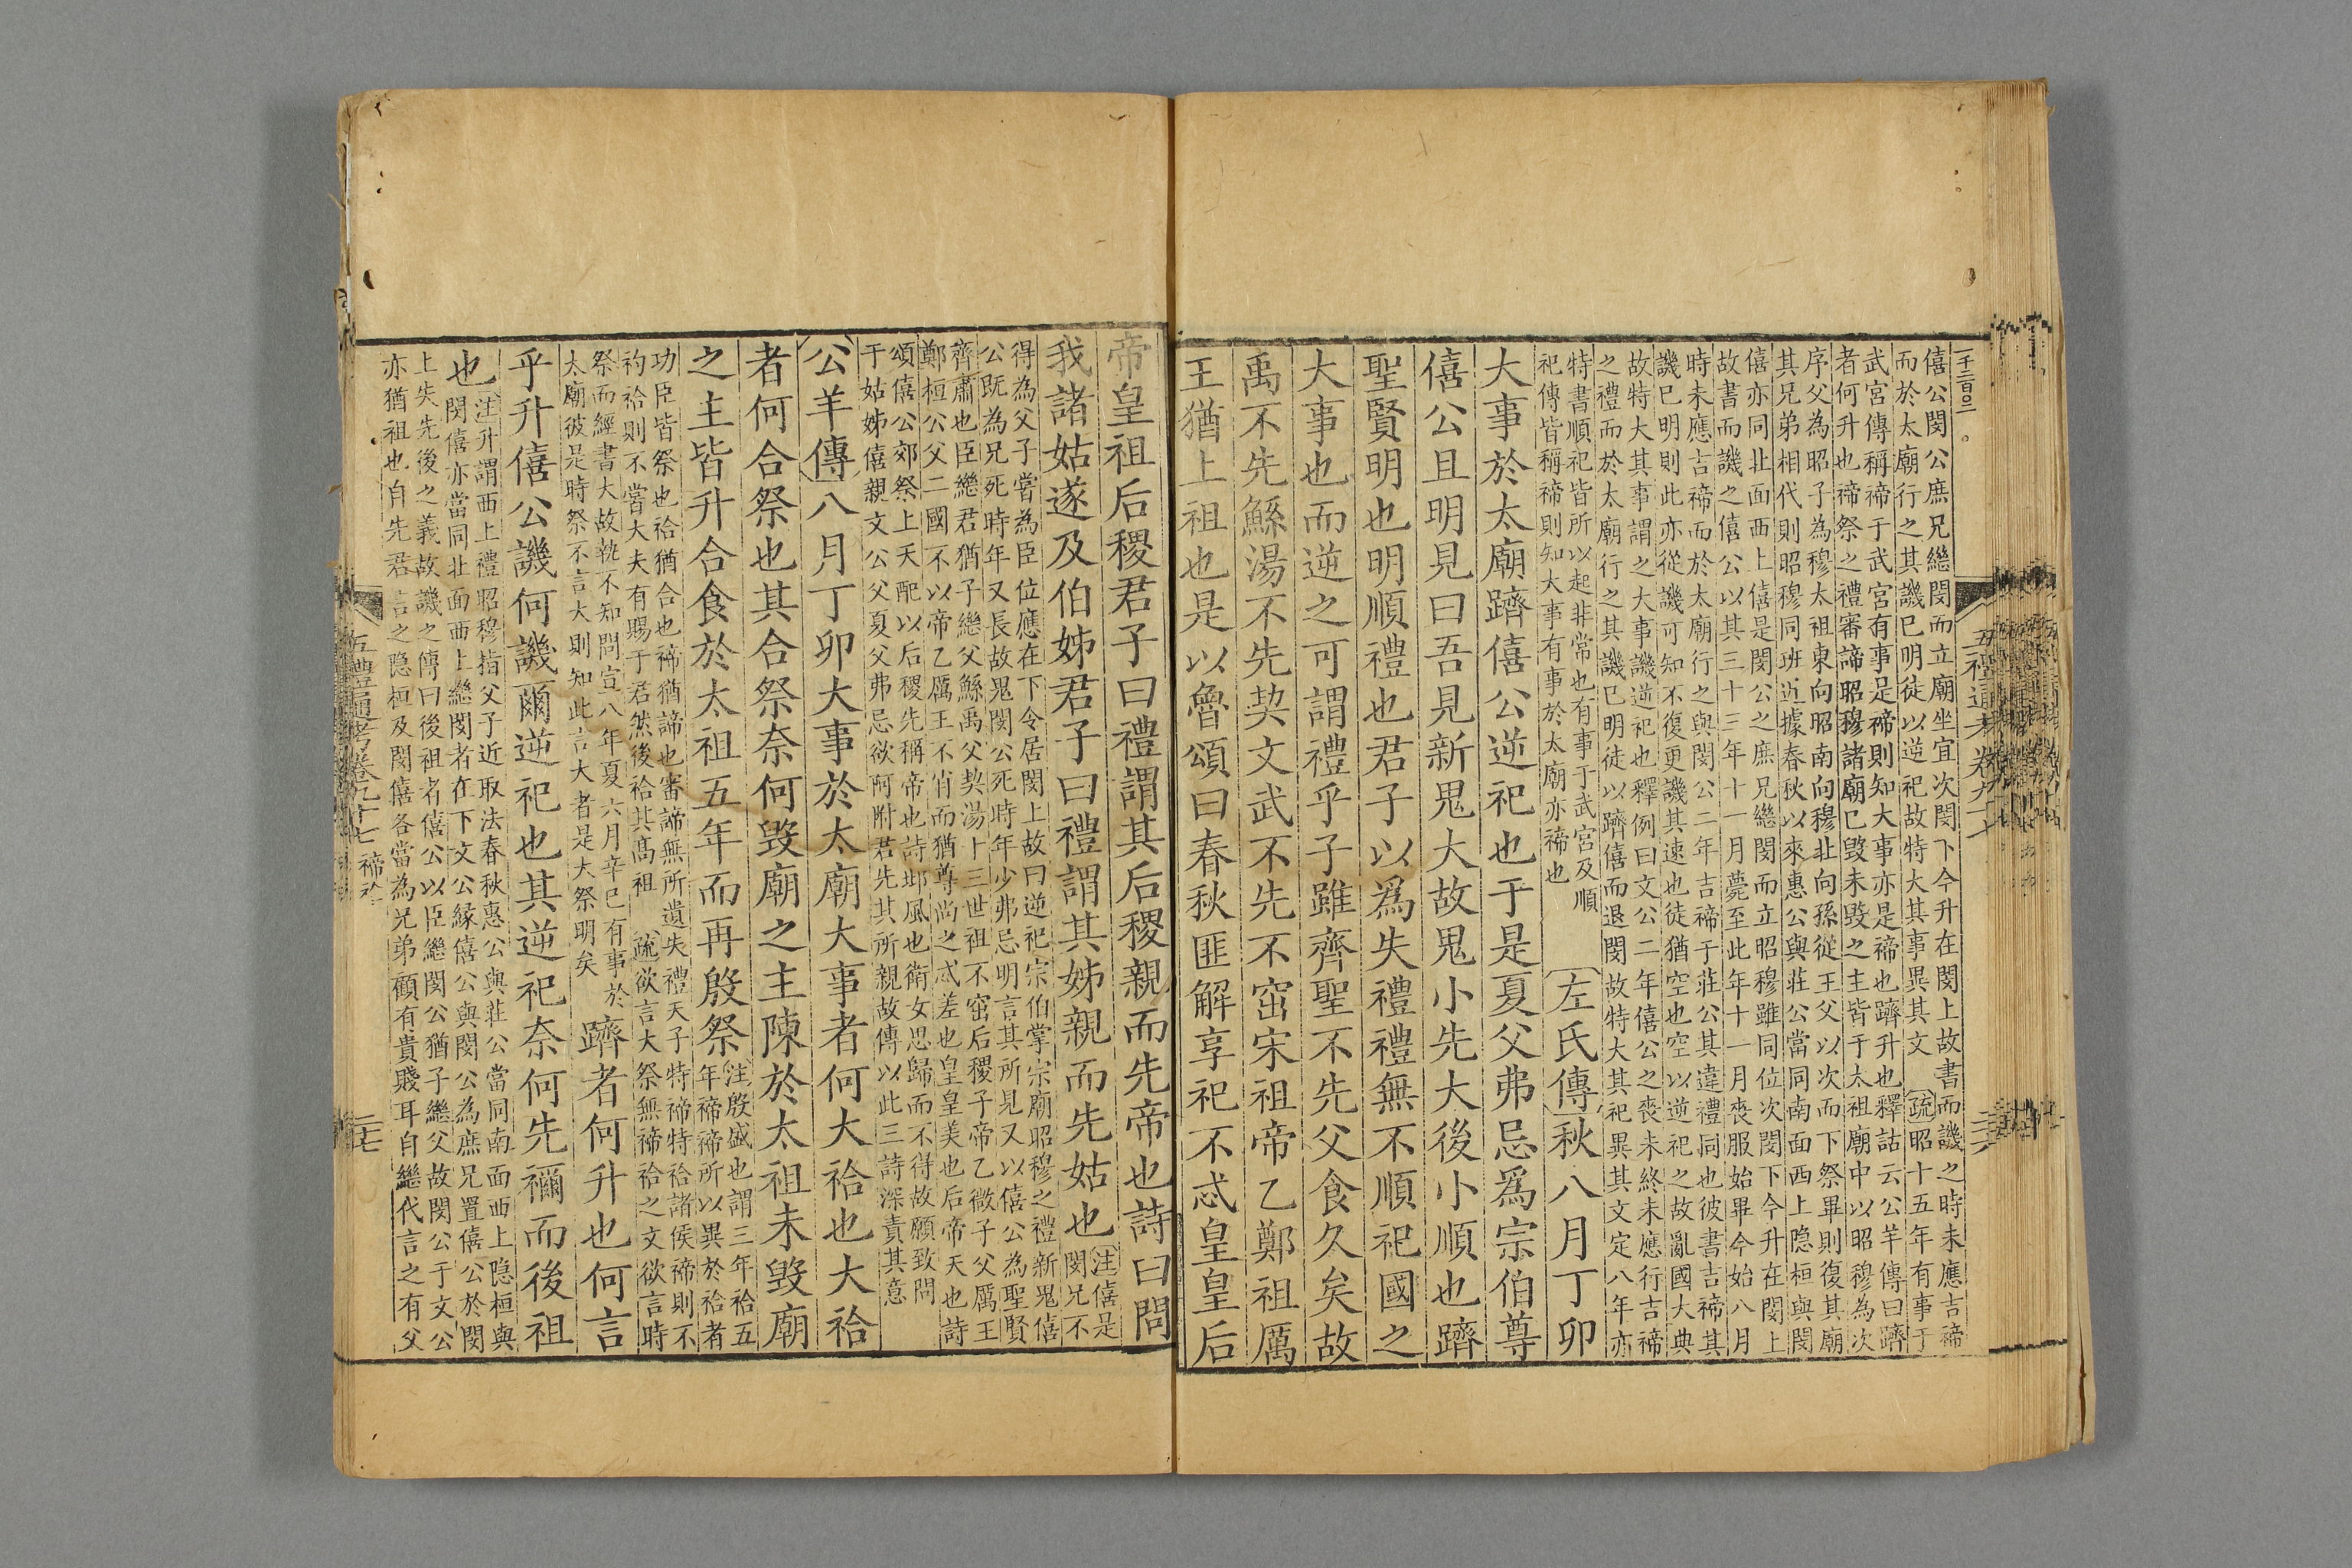 僖公閔公庶兄繼閔而立廟坐宜次閔下今升在閔上故書而譏之時未應吉禘
而於太廟行之其譏已明徒以逆祀故特大其事異其文 疏昭十五年有事于
武宮傳稱禘于武宮有事是禘則知大事亦是禘也躋升也釋詁云公羊傳曰躋
者何升也禘祭之禮審諦昭穆諸廟已毀未毀之主皆于太祖廟中以昭穆為次
序父為昭子為穆太祖東向昭南向穆北向孫從王父以次而下祭畢則復其廟
其兄弟相代則昭穆同班近據春秋以來惠公與莊公當同南面西上隐桓與閔
僖亦同北面西上僖是閔公之庶兄繼閔而立昭穆雖同位次閔下今升在閔上
故書而譏之僖公以其三十三年十一月薨至此年十一月喪服始畢今始八月
時未應吉禘而於太廟行之與閔公二年吉禘于莊公其違禮同也彼書吉禘其
譏已明則此亦從譏可知不復更譏其速也徒猶空也空以逆祀之故亂國大典
故特大其事謂之大事譏逆祀也釋例曰文公二年僖公之喪未終未應行吉禘
之禮而於太廟行之其譏已明徒以躋僖而退閔故特大其祀異其文定八年亦
特書順祀皆所以起非常也有事于武宮及順
祀傳皆稱禘則知大事有事於太廟亦禘也
左氏傳秋八月丁卯
大事於太廟躋僖公逆祀也于是夏父弗忌爲宗伯尊
僖公且明見曰吾見新鬼大故鬼小先大後小順也躋
聖賢明也明順禮也君子以爲失禮禮無不順祀國之
大事也而逆之可謂禮乎子雖齊聖不先父食久矣故
禹不先鯀湯不先契文武不先不窋宋祖帝乙鄭祖厲
王猶上祖也是以魯頌曰春秋匪解享祀不忒皇皇后
帝皇祖后稷君子曰禮謂其后稷親而先帝也詩曰問
我諸姑遂及伯姊君子曰禮謂其姊親而先姑也
注僖是
閔兄不
得為父子嘗為臣位應在下令居閔上故曰逆祀宗伯掌宗廟昭穆之禮新鬼僖
公既為兄死時年又長故鬼閔公死時年少弗忌明言其所見又以僖公為聖賢
齊肅也臣繼君猶子繼父鯀禹父契湯十三世祖不窋后稷子帝乙微子父厲王
鄭桓公父二國不以帝乙厲王不肖而猶尊尚之忒差也皇皇美也后帝天也詩
頌僖公郊祭上天配以后稷先稱帝也詩邶風也衛女思歸而不得故願致問
于姑姊僖親文公父夏父弗忌欲阿附君先其所親故傳以此三詩深責其意
公羊傳八月丁卯大事於太廟大事者何大祫也大祫
者何合祭也其合祭奈何毀廟之主陳於太祖未毀廟
之主皆升合食於太祖五年而再殷祭
注殷盛也謂三年祫五
年禘禘所以異於祫者
功臣皆祭也祫猶合也禘猶諦也審諦無所遺失禮天子特禘特祫諸侯禘則不
礿祫則不嘗大夫有賜于君然後祫其高祖 疏欲言大祭無禘祫之文欲言時
祭而經書大故執不知問宣八年夏六月辛巳有事於
太廟彼是時祭不言大則知此言大者是大祭明矣
躋者何升也何言
乎升僖公譏何譏爾逆祀也其逆祀奈何先禰而後祖
也
注升謂西上禮昭穆指父子近取法春秋惠公與莊公當同南面西上隐桓與
閔僖亦當同北面西上繼閔者在下文公緣僖公與閔公為庶兄置僖公於閔
上失先後之義故譏之傳曰後祖者僖公以臣繼閔公猶子繼父故閔公于文公
亦猶祖也自先君言之隐桓及閔僖各當為兄弟顧有貴賤耳自繼代言之有父
五禮通考卷九十七 禘祫
二十七